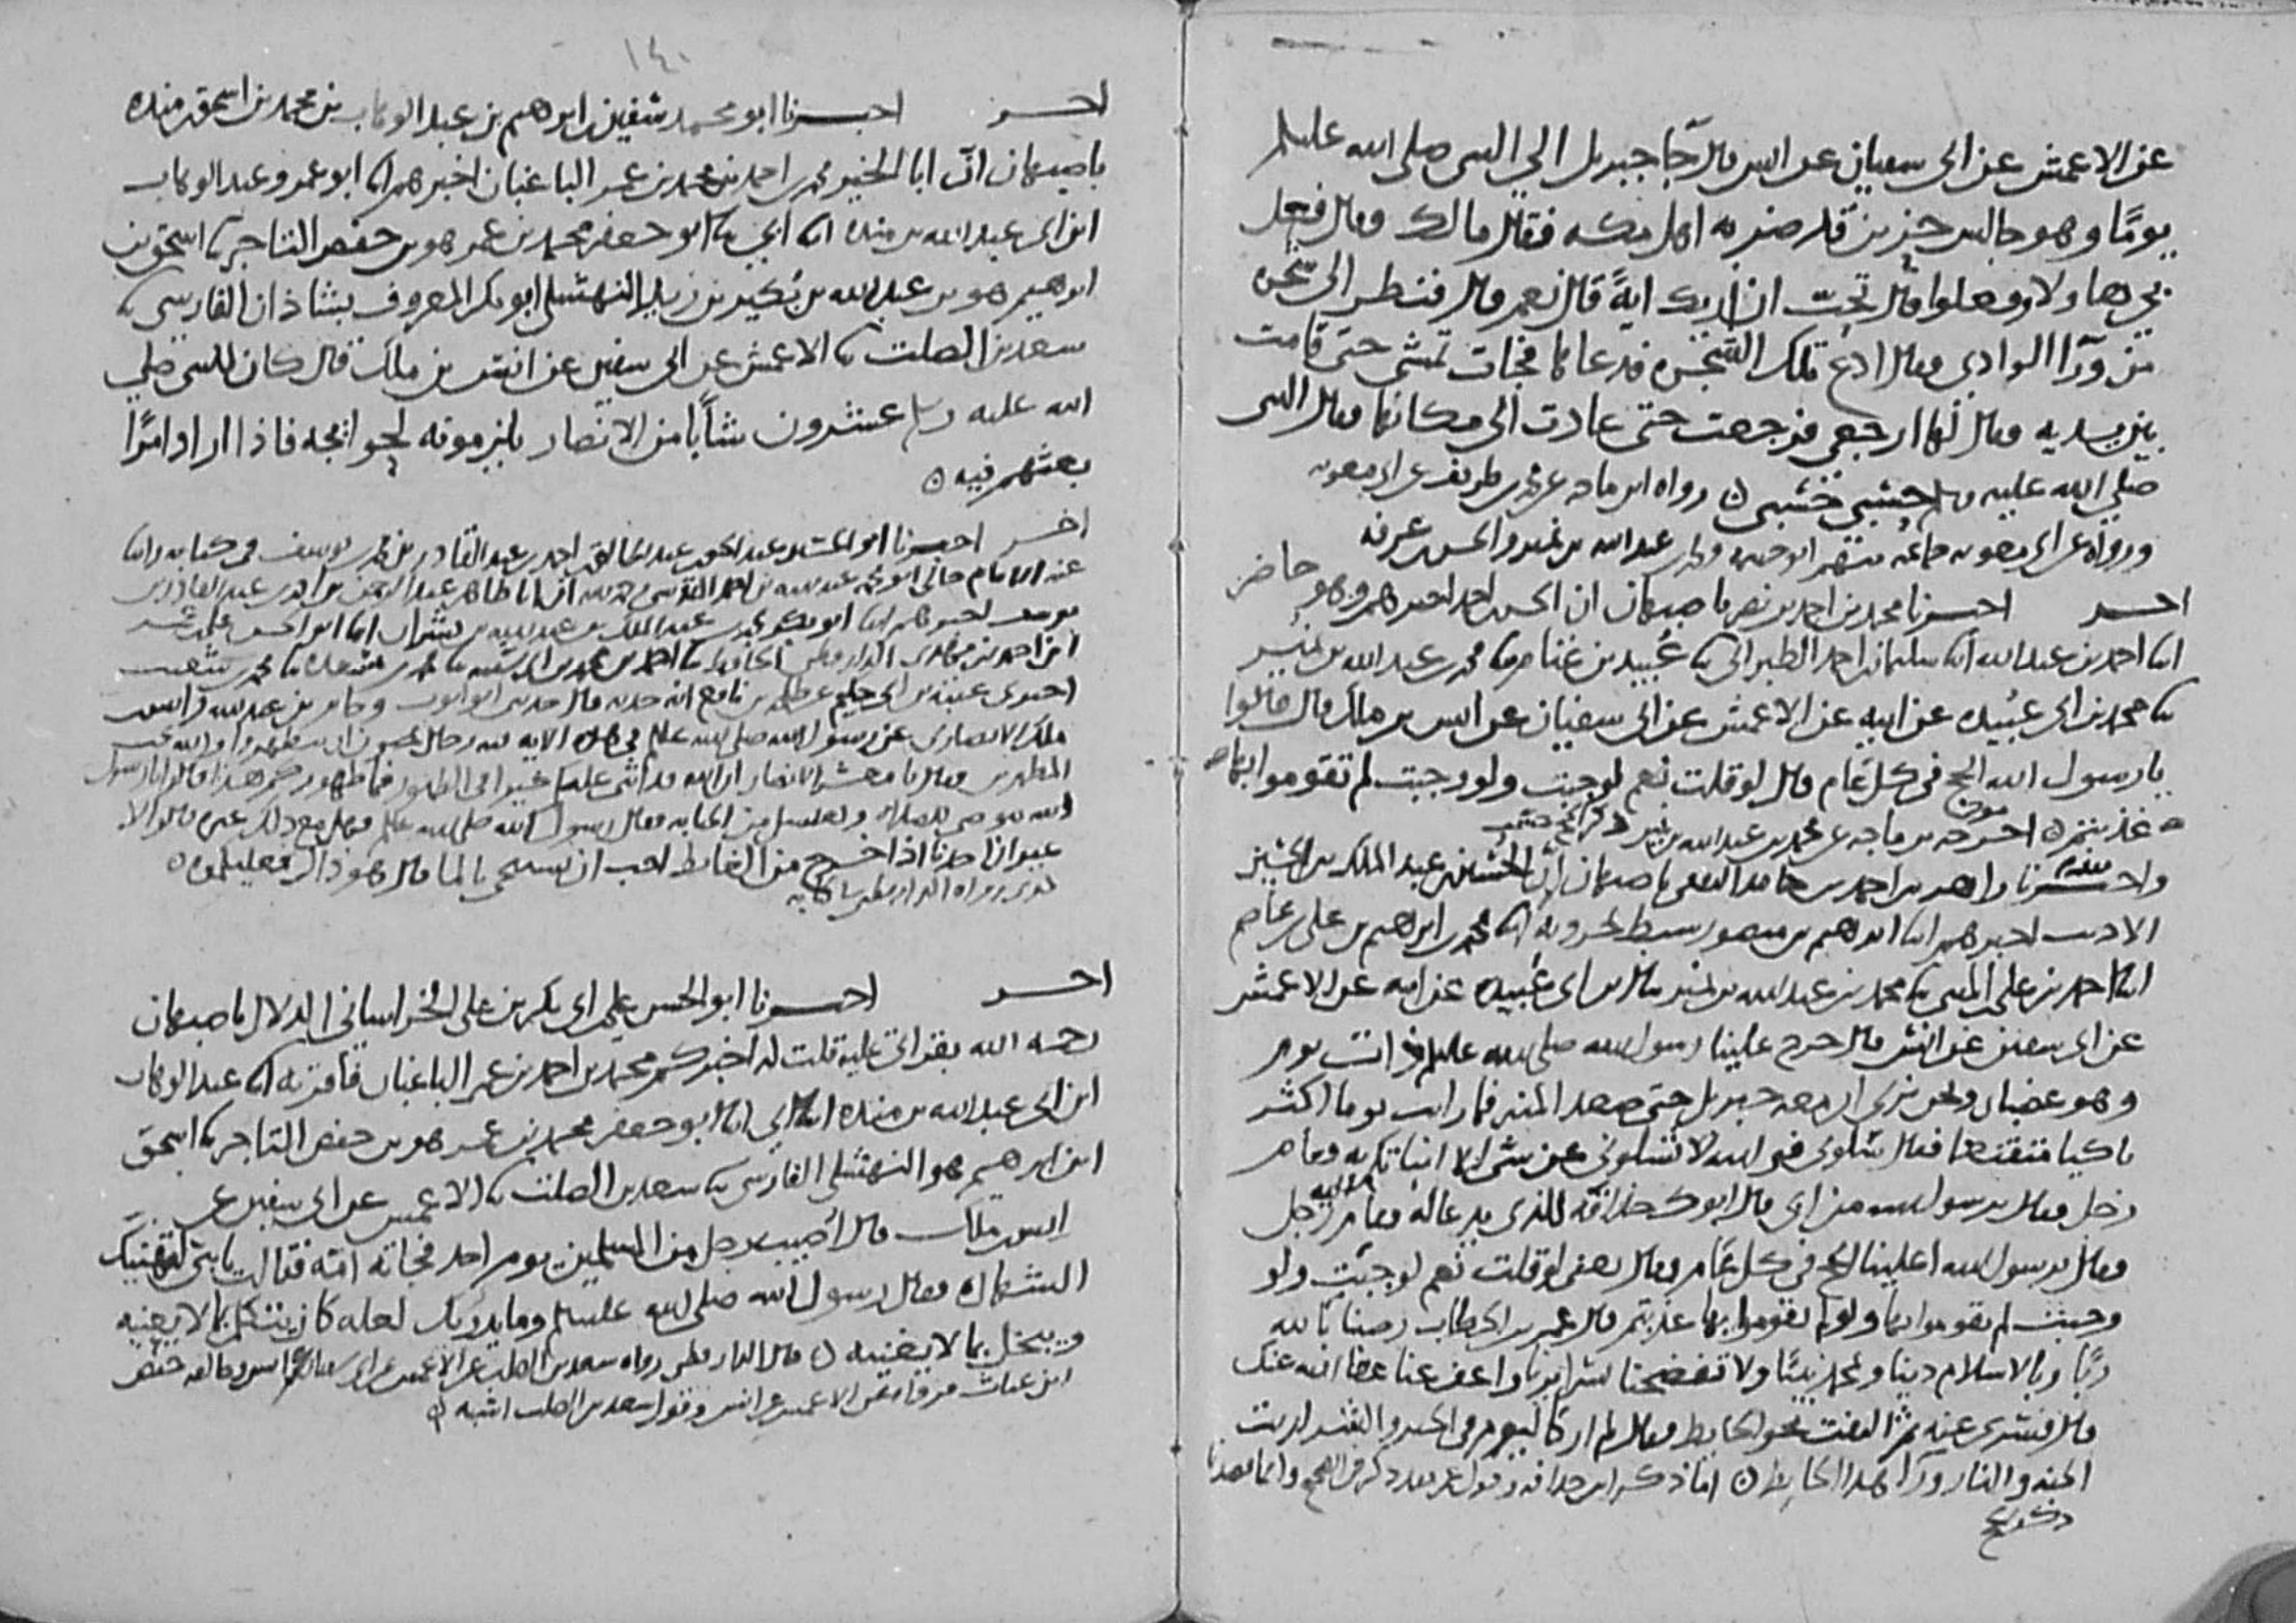 عن الاعمش عن ابي سفيان عن انس قال جا جبريل الي النبي صلى الله عليه وسلم
يومًا وهو جالس حزين قد ضربه اهل مكه فقال مالك وقال فعل
بي هاولا وفعلوا قال تحب ان اريك ايةً قال نعم قال فنظر الى شجره
من ورآ الوادي وقال ادع تلك الشجره فدعاها فجات تمشي حتى قامت
بين يديه وقال لها ارجعي فرجعت حتى عادت الى مكانها وقال النبي
صلى الله عليه وسلم حسبي حسبي ه رواه ابن ماجه عن محمد بن طريف عن ابي معويه
ورواه عن ابي معويه جماعه منهم ابو خيثمه ومحمد بن عبد الله بن نمير والحسن بن عرفه
اخبرنا محمد بن احمد بن نصر باصبهان ان الحسن بن احمد اخبرهم وهو حاضر
ابنا احمد بن عبد الله ابنا سليمان بن احمد الطبراني ثنا عُبيد بن غنام ثنا محمد بن عبد الله بن نمير
ثنا محمد بن ابي عُبيده عن ابيه عن الاعمش عن ابي سفيان عن انس بن ملك قال قالوا
يا رسول الله الحج في كل عام قال لو قلت نعم لوجبت ولو وجبت لم تقوموا بها
عذبتم ه اخرجه بن ماجه عن محمد بن عبد الله بن نمير ذكر الحج حسب
واخبرنا زاهر بن احمد بن حامد الثقفي باصبهان ان الحسين بن عبد الملك بن الحسين
الاديب اخبرهم ابنا ابرهيم بن منصور سبط بحرويه ابنا محمد بن ابراهيم بن علي بن عاصم
ابنا احمد بن علي بن المثنى ثنا محمد بن عبد الله بن نمير ثنا بن ابي عُبيده عن ابيه عن الاعمش
عن ابي سفين عن انس قال خرج علينا رسول الله صلى الله عليه وسلم ذات يوم
وهو غضبان ونحن نرى ان معه جبريل حتى صعد المنبر فما رايت يوما اكثر
باكيا متقنعا فقال سلوني فوالله لا تسلوني عن شي الا انباتكم به وقام
رجل وقال يرسول الله من ابي قال ابوك حذافه للذي يدعا له وقام اليه رجل
وقال يرسول الله اعلينا الحج في كل عام وقال يعني لو قلت نعم لوجبت ولو
وجبت لم تقوموا بها ولو لم تقوموا بها عذبتم قال عمر بن الخطاب رضينا بالله
ربًا وبالاسلام دينا وبمحمد نبيًا ولا تفضحنا بسرايرنا واعف عنا عفا الله عنك
قال فسري عنه ثم التفت نحو الحايط وقال لم ار كاليوم في الخير والشر اريت
الجنه والنار ورآ هذا الحايط ه اما ذكر ابن حذافه وقول عمر فقد ذكر في الصحيح وانما قصدنا
ذكر الحج
١٤٠
اخبرنا ابو محمد سفين بن ابرهيم بن عبد الوهاب بن محمد بن اسحق بن منده
باصبهان انّ ابا الخير محمد بن احمد بن محمد بن عمر الباغبان اخبرهم ابنا ابو عمرو عبد الوهاب
ابن ابي عبد الله بن منده ابنا ابي ثنا ابو جعفر محمد بن عمر هو بن حفص التاجر ثنا اسحق بن
ابرهيم هو بن عبد الله بن بُكير بن زيد النهشلي ابو بكر المعروف بشاذان الفارسي ثنا
سعد بن الصلت ثنا الاعمش عن ابي سفين عن انس بن ملك قال كان للنبي صلى
الله عليه وسلم عشرون شابًا من الانصار يلزمونه لحوائجه فاذا اراد امرًا
بعثهم فيه ه
اخبرنا ابو الحسين عبد الحق بن عبد الخالق بن احمد بن عبد القادر بن محمد بن يوسف في كتابه وابنا
عنه الامام خالي ابو محمد عبد الله بن احمد المقدسي رحمه الله ان ابا طاهر عبد الرحمن بن احمد بن عبد القادر بن
يوسف اخبرهم ابنا ابو بكر محمد بن عبد الملك بن عبد الله بن بشران ابنا ابو الحسن علي بن عمر
ابن احمد بن مهدي الدارقطني الحافظ
اخبرني عتبه بن ابي حكيم عن طلحه بن نافع انه حدثه قال حدثني ابو ايوب وجابر بن عبد الله وانس بن
ملك الانصاري عن رسول الله صلى الله عليه وسلم في هذه الايه فيه رجال يحبون ان يتطهروا والله يحب
المطهرين وقال يا معشر الانصار ان الله قد اثنى عليكم خيرا في الطهور فما طهوركم هذا قالوا يا رسول
الله نتوضى للصلاه ونغتسل من الجنابه وقال رسول الله صلى الله عليه وسلم فهل مع ذلك غيره قالوا لا
غير ان احدنا اذا خرج من الغايط احب ان يستنجي بالما قال هو ذاك فعليكموه ه
كذي رواه الدارقطني في كتابه
اخبرنا ابو الحسن علي بن ابي بكر بن علي الخراساني الدلال باصبهان
رحمه الله بقراتي عليه قلت له اخبركم محمد بن احمد بن عمر الباغبان فاقر به ابنا عبد الوهاب
ابن ابي عبد الله بن منده ابنا ابي ابنا ابو جعفر محمد بن عمر هو بن حفص التاجر ثنا اسحق
ابن ابرهيم هو النهشلي الفارسي ثنا سعد بن الصلت ثنا الاعمش عن ابي سفين عن
انس بن ملك قال اصيب رجل من المسلمين يوم احد فجاته امه فقالت يا بني ليهنيك
الشهاده وقال رسول الله صلى الله عليه وسلم وما يدريك لعله كان يتكلم بما لا يعنيه
ويبخل بما لا يغنيه ه قال الدارقطني رواه سعد بن الصلت عن الاعمش عن ابي سفيان عن انس وخالفه حفص
ابن غياث فرواه عن الاعمش عن انس وقول سعد بن الصلت اشبه ه